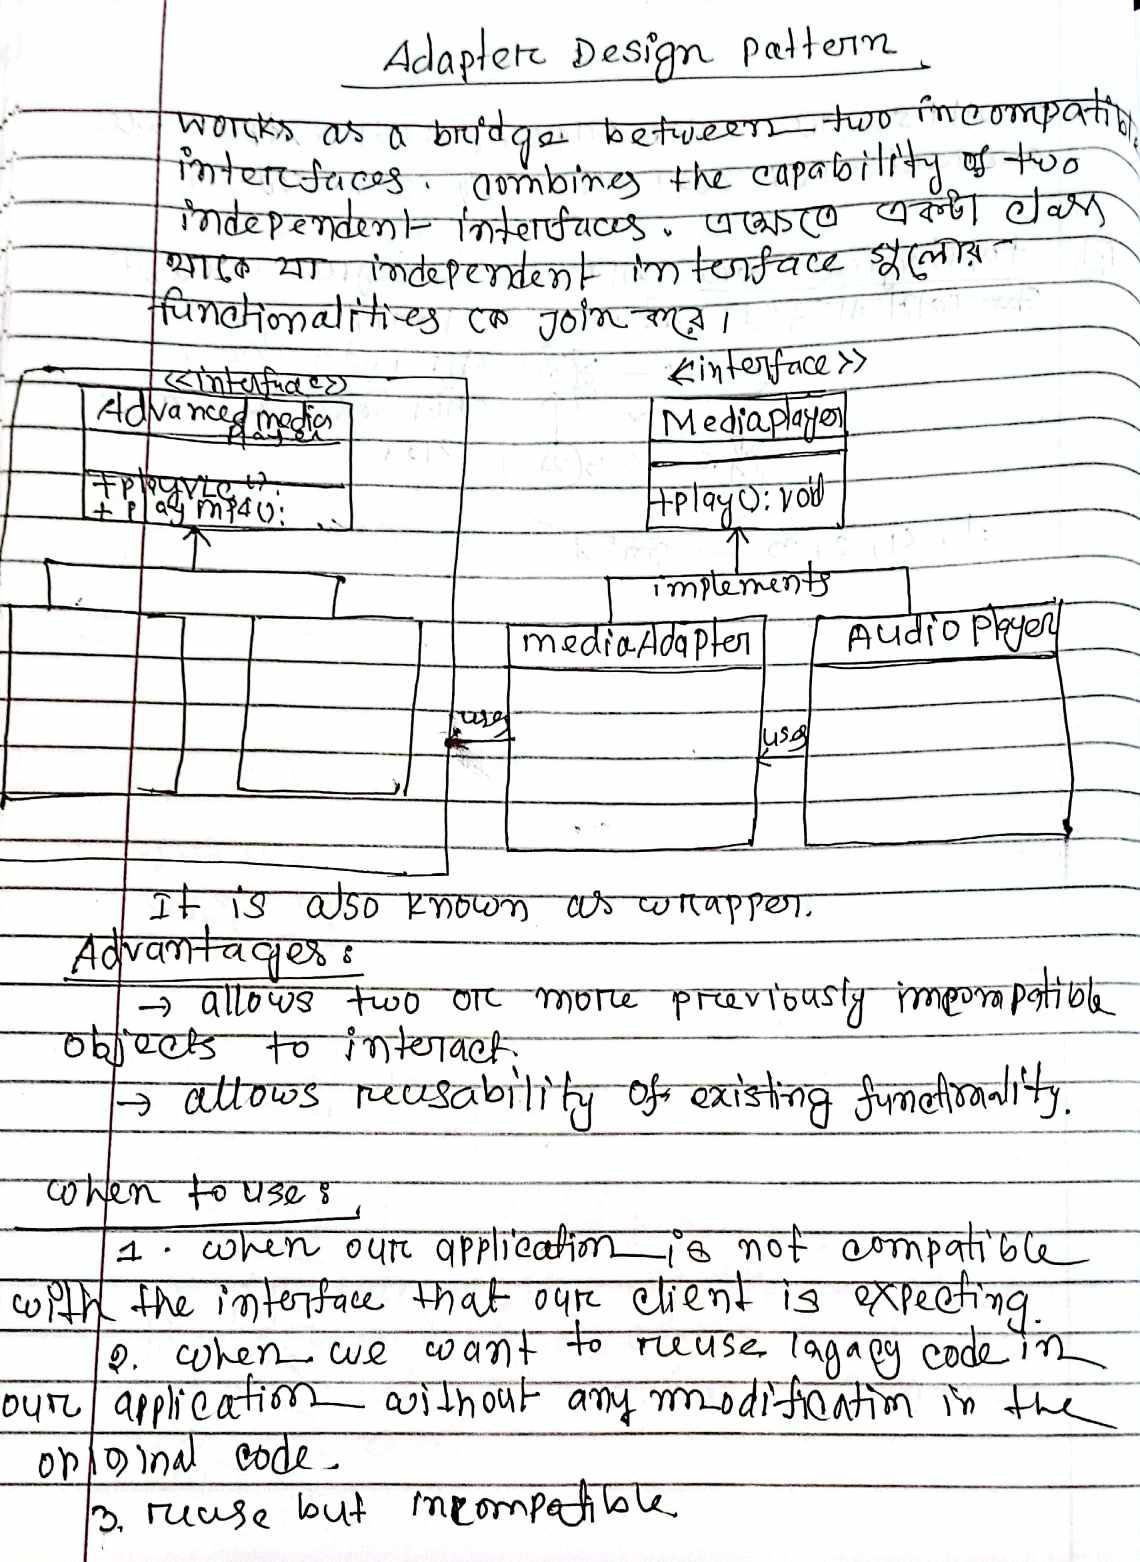 Adapter Design Pattern
Works as a bridge between two incompatible
interfaces. combines the capability of two
independent interfaces. এক্ষেত্রে একটা class
থাকে যা independent interface গুলোর
functionalities কে join করে।
<<interface>>
<<interface>>
Advanced media
player
Mediaplayer
+playVLC():
+play mp4():
+play(): void
implements
mediaAdapter
Audio player
uses
uses
It is also known as wrapper.
Advantages:
→ allows two or more previously incompatible
objects to interact.
→ allows reusability of existing functionality.
when to use:
1. when our application is not compatible
with the interface that our client is expecting.
2. when we want to reuse lagacy code in
our application without any modification in the
original code.
3. reuse but incompatible